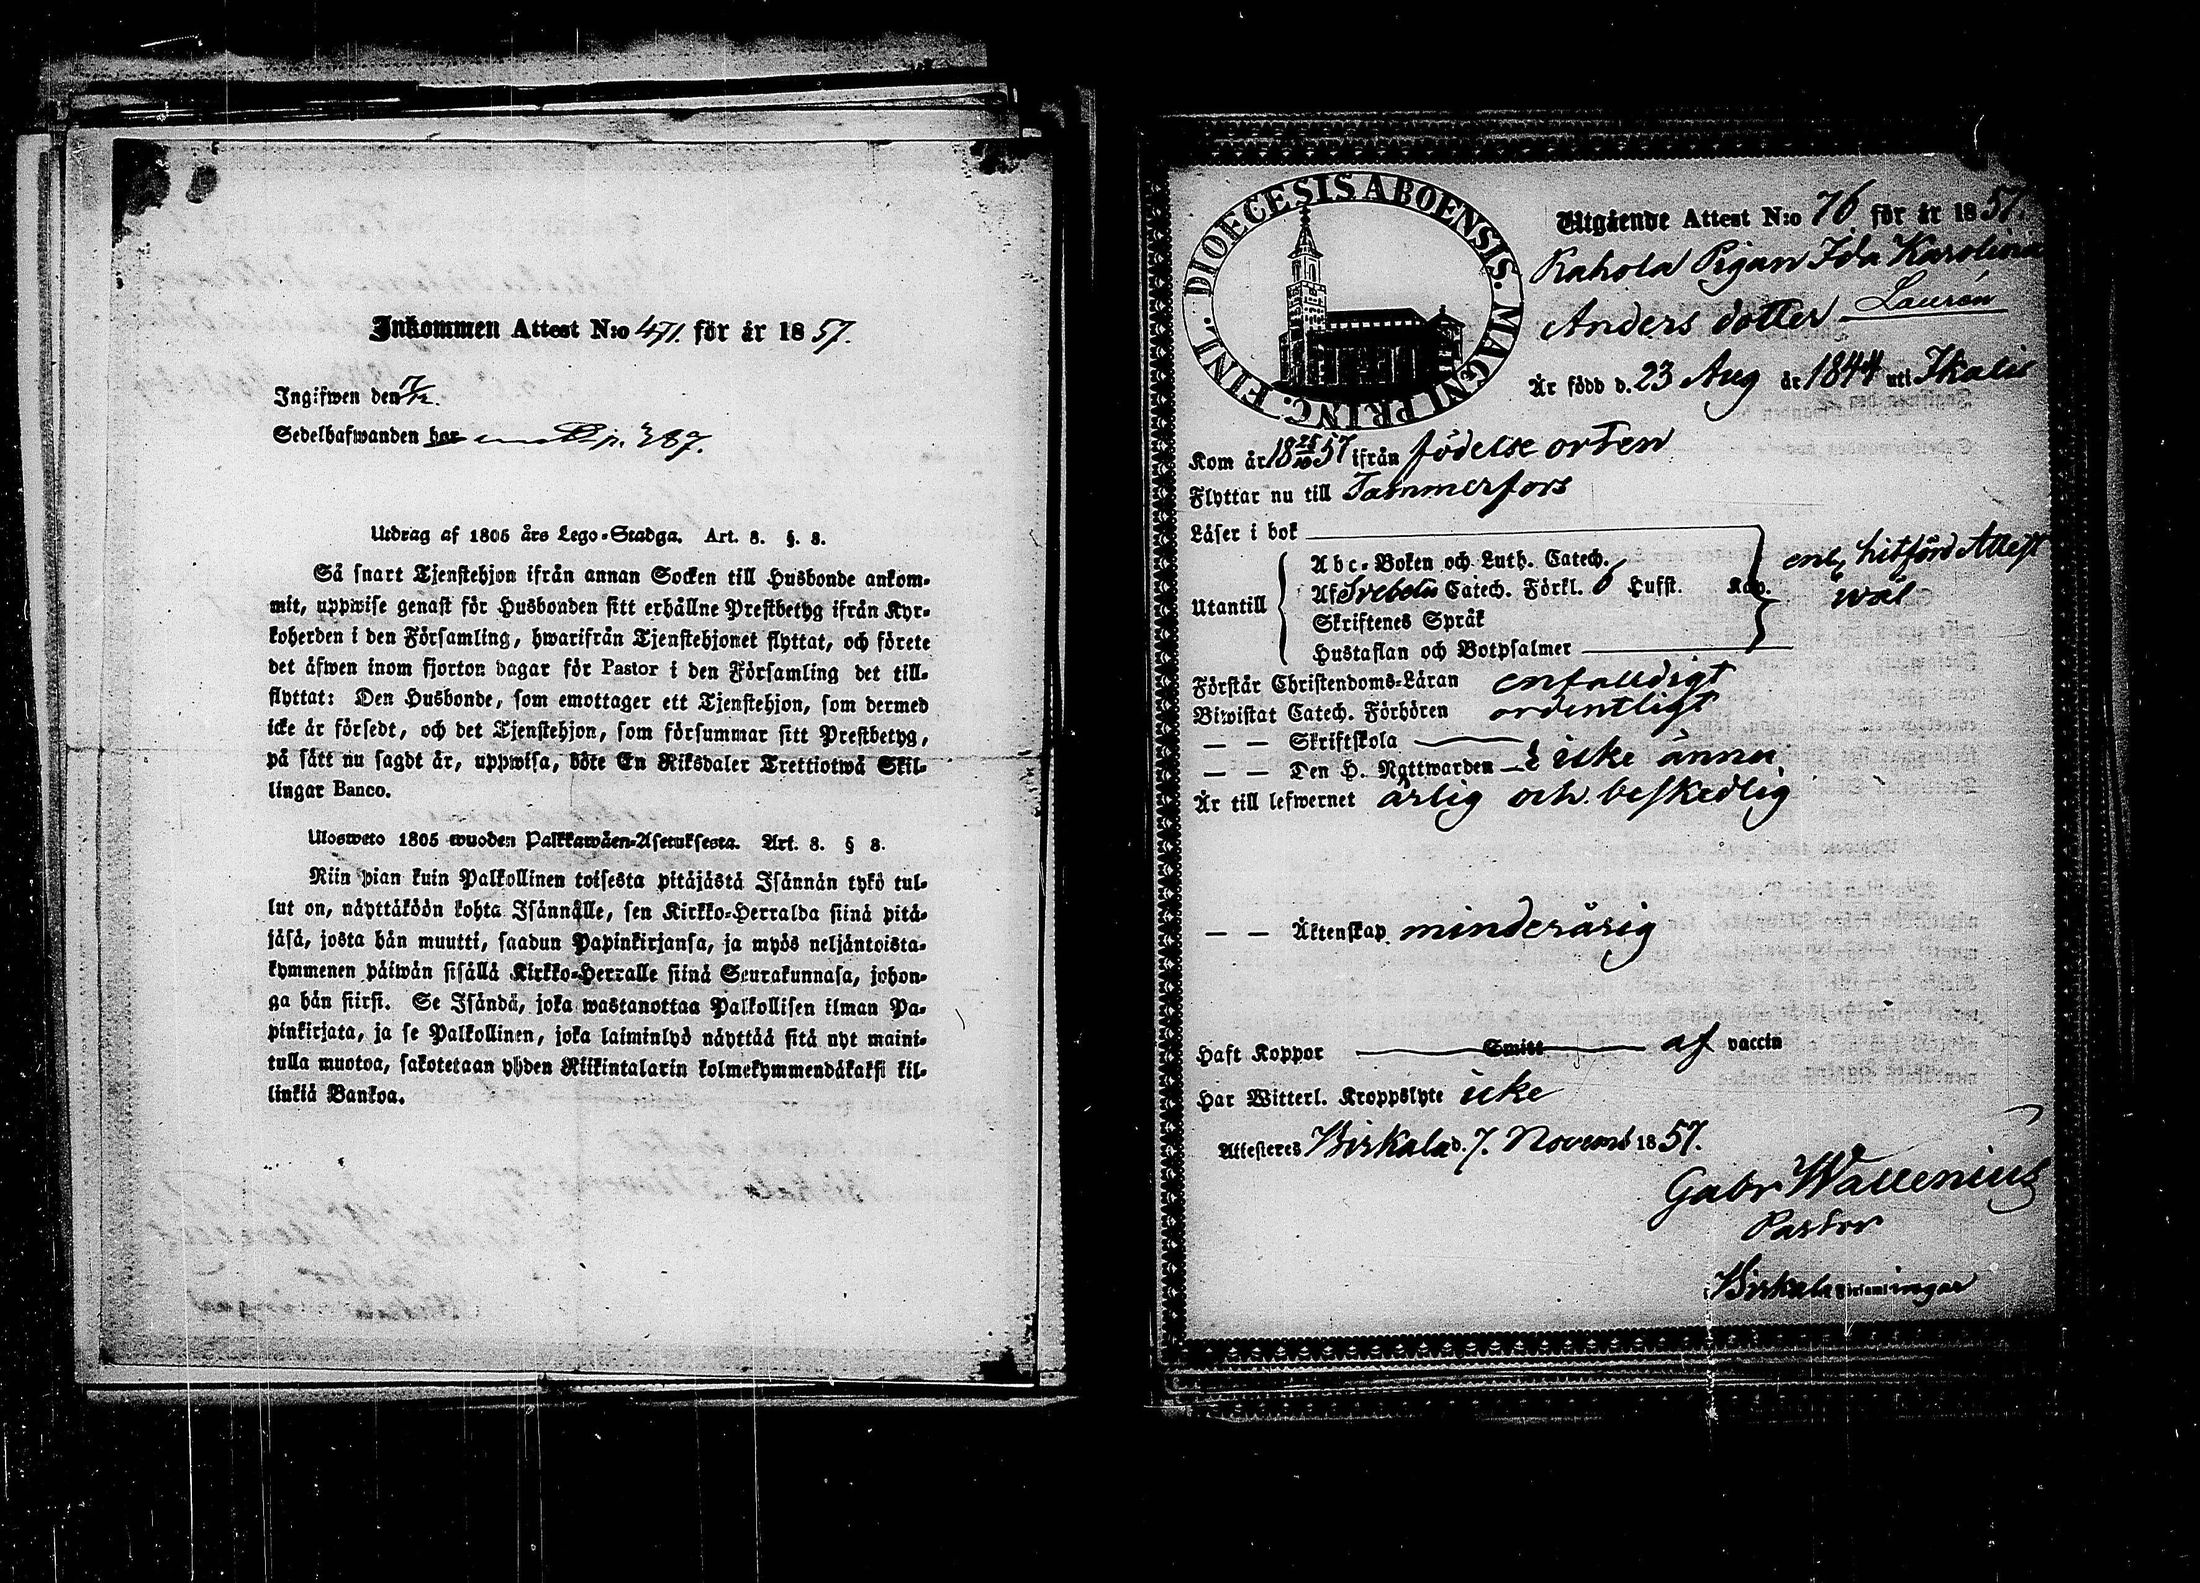 Inkommen Attest N:o 471. för år 1857.
Ingifwen den 7/12.
Sedelhafwanden bor p. 387.
Utdrag af 1805 års Lego-Stadga. Art. 8. §. 8.
Så snart Tjenstehjon ifrån annan Socken till Husbonde ankom-
mit, uppwise genast för Husbonden sitt erhållne Prestbetyg ifrån Kyr-
koherden i den Församling, hwarifrån Tjenstehjonet flyttat, och förete
det äfwen inom fjorton dagar för Pastor i den Församling det till-
flyttat: Den Husbonde, som emottager ett Tjenstehjon, som dermed
icke är försedt, och det Tjenstehjon, som försummar sitt Prestbetyg,
på sätt nu sagdt är, uppwisa, böte En Riksdaler Trettiotwå Skil-
lingar Banco.
Ulosweto 1805 wuoden Palkkawäen-Asetuksesta. Art. 8. § 8.
Niin pian kuin Palkollinen toisesta pitäjästä Isännän tykö tul-
lut on, näyttäköön kohta Isännälle, sen Kirkko-Herralda siinä pitä-
jäsä, josta hän muutti, saadun Papinkirjansa, ja myös neljäntoista-
kymmenen päiwän sisällä Kirkko-Herralle siinä Seurakunnasa, johon-
ga hän siirsi. Se Isändä, joka wastanottaa Palkollisen ilman Pa-
pinkirjata, ja se Palkollinen, joka laiminlyö näyttää sitä nyt maini-
tulla muotoa, sakotetaan yhden Riikintalarin kolmekymmendäkaksi kil-
linkiä Bankoa.
DIOECESIS ABOENSIS. MAGNI PRINC. FINL.
Utgående Attest N:o 76 för år 1857.
Rahola Pigan Ida Karolina
Anders dotter Laurén
Är född d. 23 Aug år 1844 uti Ikalis
Kom år 18 25/10 57 ifrån födelse orten
Flyttar nu till Tammerfors
Läser i bok
Abc-Boken och Luth. Catech.
enl hitförd Attest
Utantill Af Svebelii Catech. Förkl. 6 Hufst. Kap. wäl
Skriftenes Språk
Hustaflan och Botpsalmer
Förstår Christendoms-Läran enfaldigt
Biwistat Catech. Förhören ordentligt
— — Skriftskola
— — Den H. Nattwarden icke ännu
Är till lefwernet ärlig och beskedlig
— — Äktenskap minderårig
Haft Koppor Smitt af vaccin
Har Witterl. Kroppslyte icke
Attesteres Birkala d. 7. Novemb 1857.
Gabr Wallenius
Pastor
i Birkala Församlingar